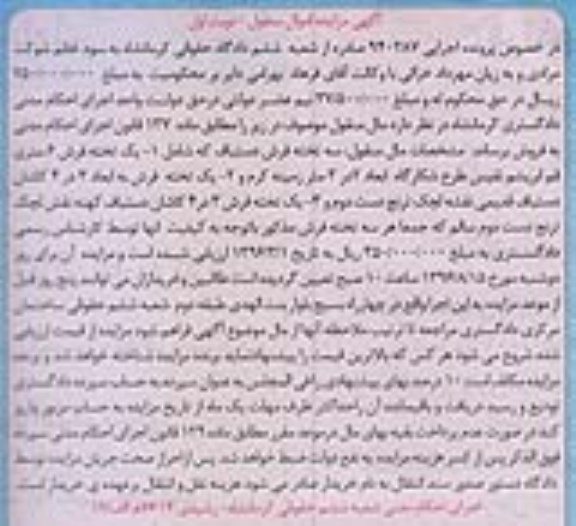 آگهی مزایده اموال منقول - نوبت اول
در خصوص پرونده اجرایی صادره از شعبه ششم دادگاه حقوقی کرمانشاه به سود خانم شوکت
مرادی و به زیان مهرداد خزائی با وکالت آقای فرهاد بهرامی دایر بر محکومیت به مبلغ
ریال در حق محکوم له و مبلغ نیم عشر دولتی در حق دولت واحد اجرای احکام مدنی
دادگستری کرمانشاه در نظر دارد مال منقول موصوف در زیر را مطابق ماده ۱۳۷ قانون اجرای احکام مدنی
به فروش برساند. مشخصات مال منقول: سه تخته فرش دستباف که شامل ۱- یک تخته فرش ۶ متری
قم ابریشم نفیس طرح شکارگاه ابعاد ۲ در ۳ متر زمینه کرم و ۲- یک تخته فرش به ابعاد ۳ در ۴ کاشان
دستباف قدیمی نقشه لچک ترنج دست دوم و ۳- یک تخته فرش ۳ در ۴ کاشان دستباف کهنه نقش لچک
ترنج دست دوم سالم که جمعا هر سه تخته فرش مذکور باتوجه به کیفیت آنها توسط کارشناس رسمی
دادگستری به مبلغ ریال به تاریخ ارزیابی شده است و مزایده آن برای روز
دوشنبه مورخ ساعت ۱۰ صبح تعیین گردیده است طالبین و خریداران می توانند پنج روز قبل
از موعد مزایده به این اجرا واقع در چهارراه بسیج بلوار بنت الهدی طبقه دوم شعبه ششم حقوقی ساختمان
مرکزی دادگستری مراجعه تا ترتیب ملاحظه آنها از مال موضوع آگهی فراهم شود مزایده از قیمت ارزیابی
شده شروع می شود هر کس که بالاترین قیمت را پیشنهاد نماید برنده مزایده شناخته خواهد شد و برنده
مزایده مکلف است ۱۰ درصد بهای پیشنهادی را فی المجلس به عنوان سپرده به حساب سپرده دادگستری
تودیع و رسید دریافت و باقیمانده آن را حداکثر ظرف مهلت یک ماه از تاریخ مزایده به حساب مزبور واریز
کند در صورت عدم پرداخت بقیه بهای مال در موعد مقرر مطابق ماده ۱۲۹ قانون اجرای احکام مدنی سپرده
فوق الذکر پس از کسر هزینه مزایده به نفع دولت ضبط خواهد شد. پس از احراز صحت جریان مزایده توسط
دادگاه دستور صدور سند انتقال به نام خریدار صادر می شود هزینه نقل و انتقال بر عهده ی خریدار است.
اجرای احکام مدنی شعبه ششم حقوقی کرمانشاه -